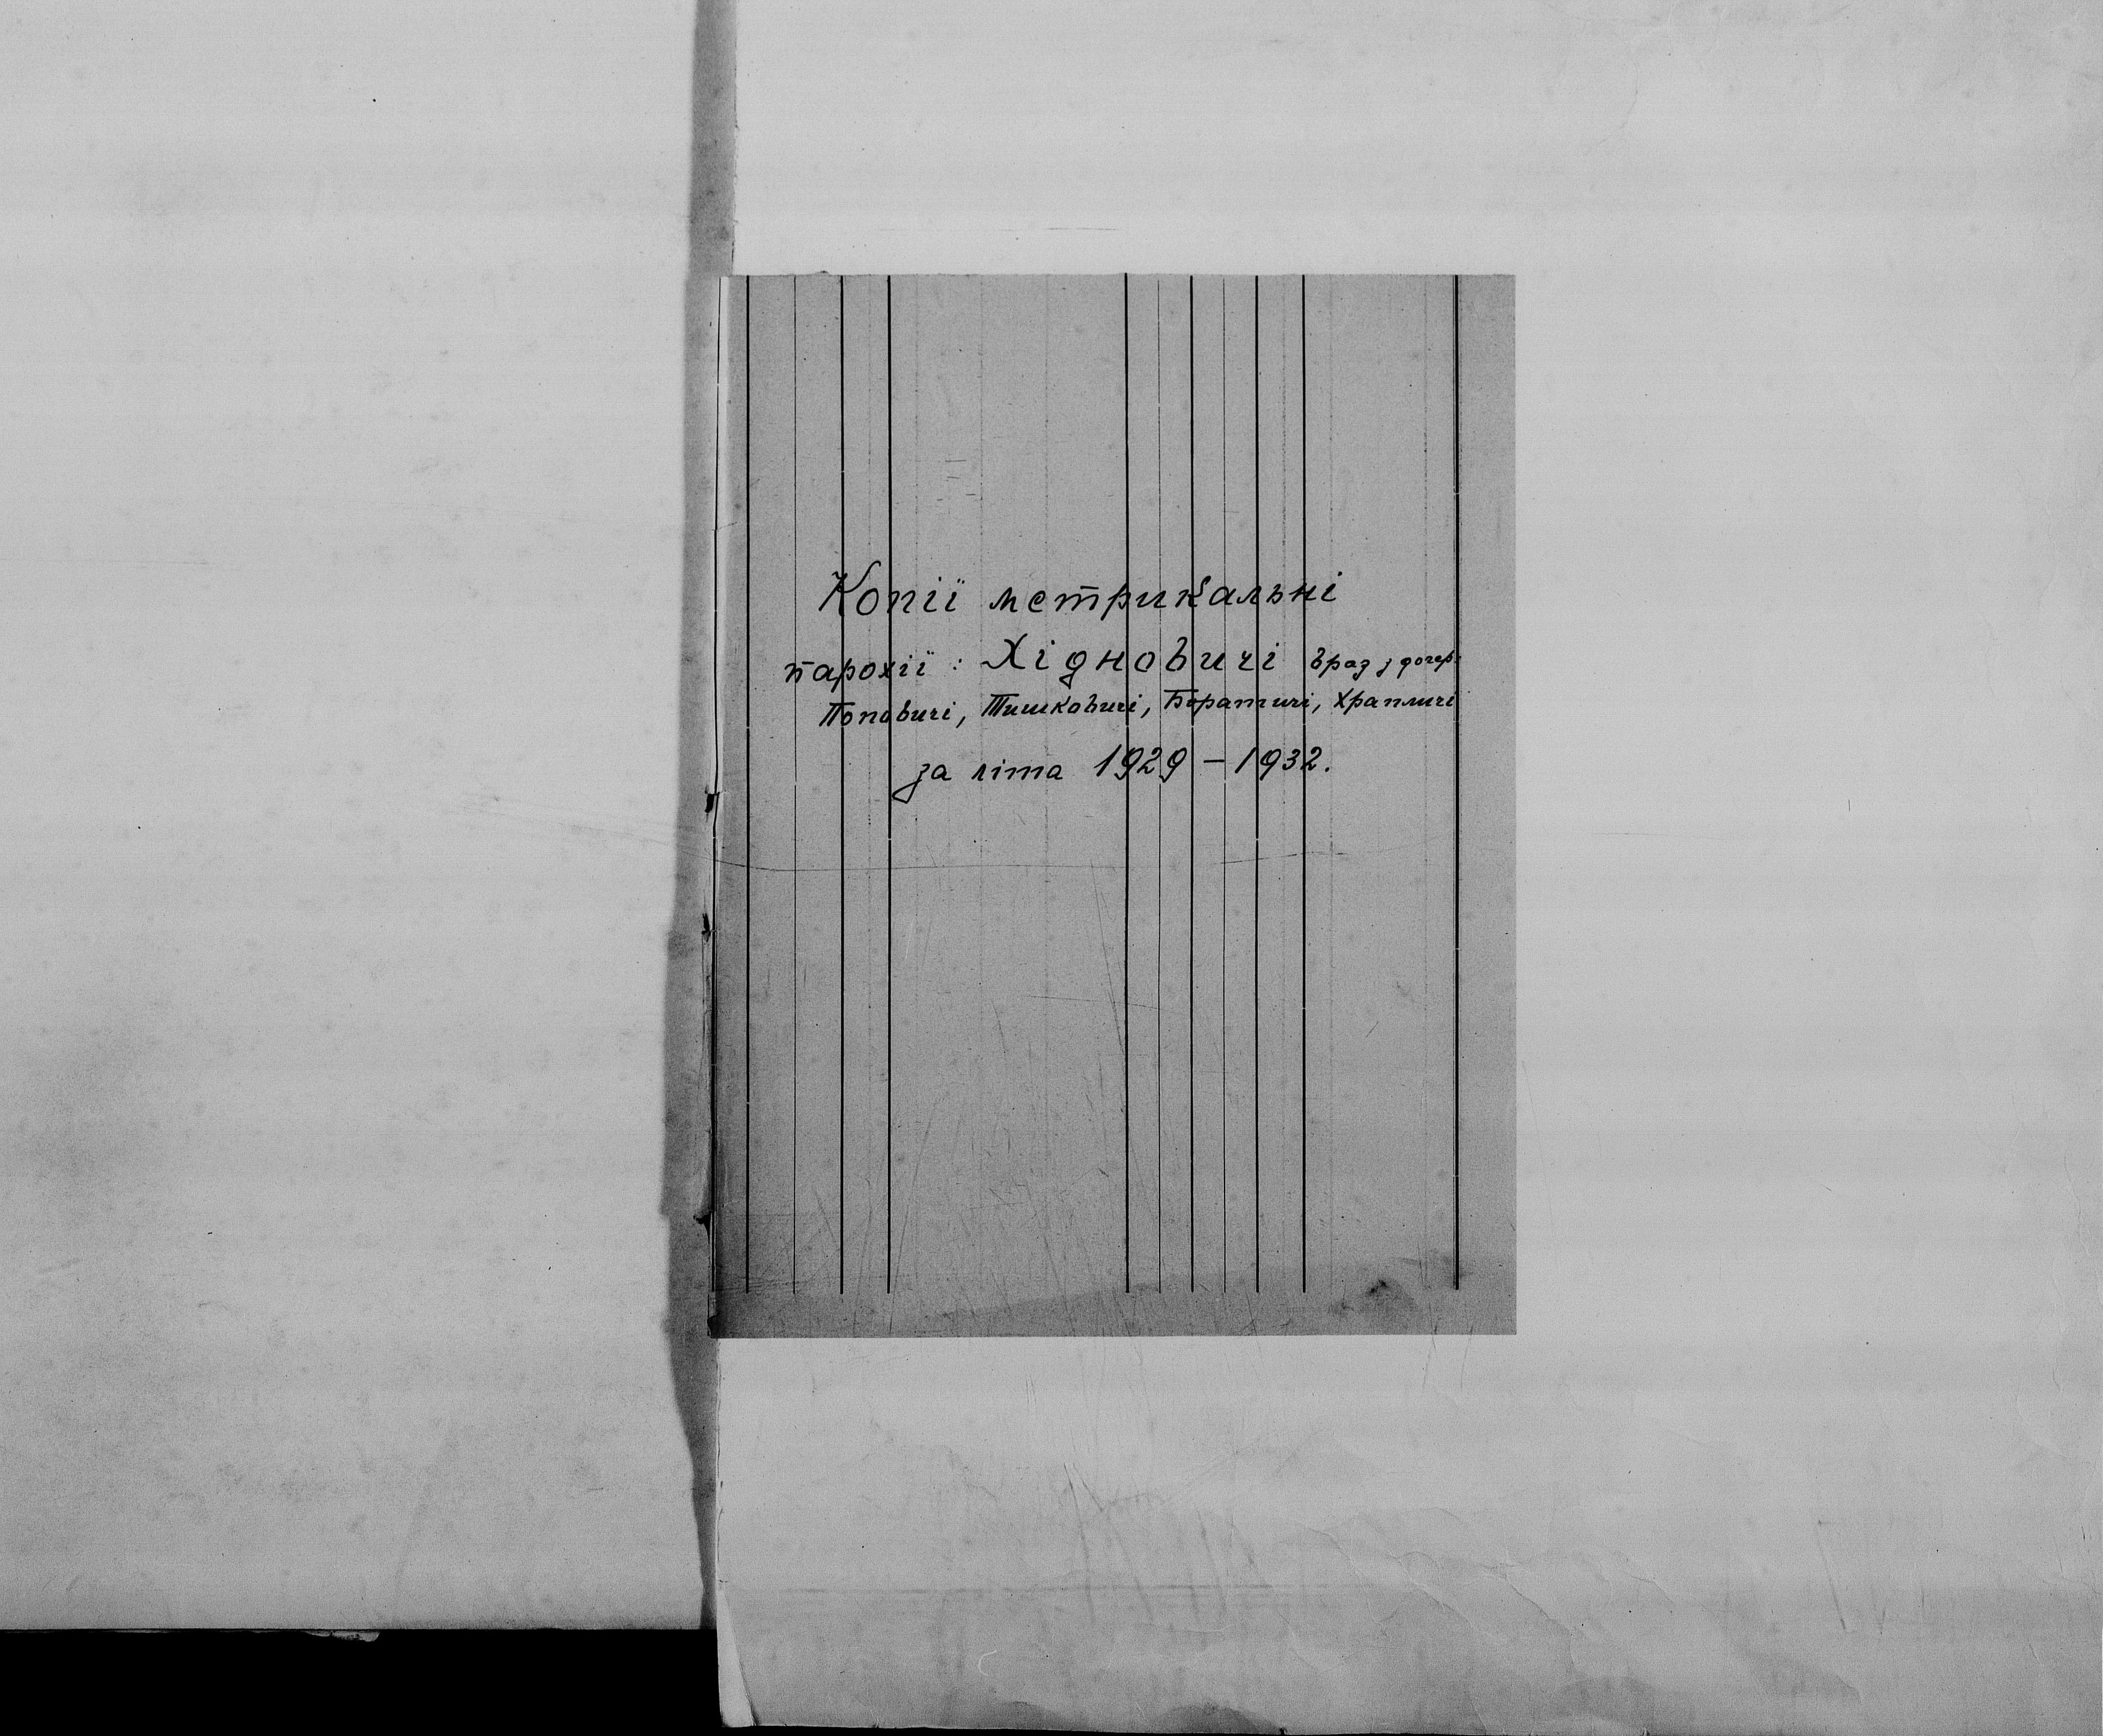 Копії метрикальні
парохії : Хідновичі враз з дочер.
Поповичі, Тишковичі, Боратичі, Храпличі
за літа 1929 – 1932.